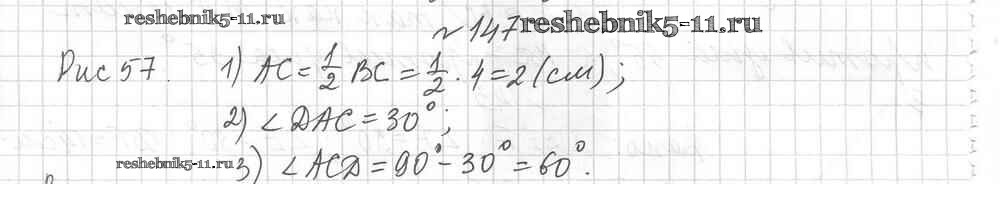 reshebnik5-11.ru
№ 147 reshebnik5-11.ru
Рис 57. 1) AC = 1/2 BC = 1/2 · 4 = 2 (см);
2) ∠DAC = 30°;
reshebnik5-11.ru 3) ∠ACD = 90° - 30° = 60°.